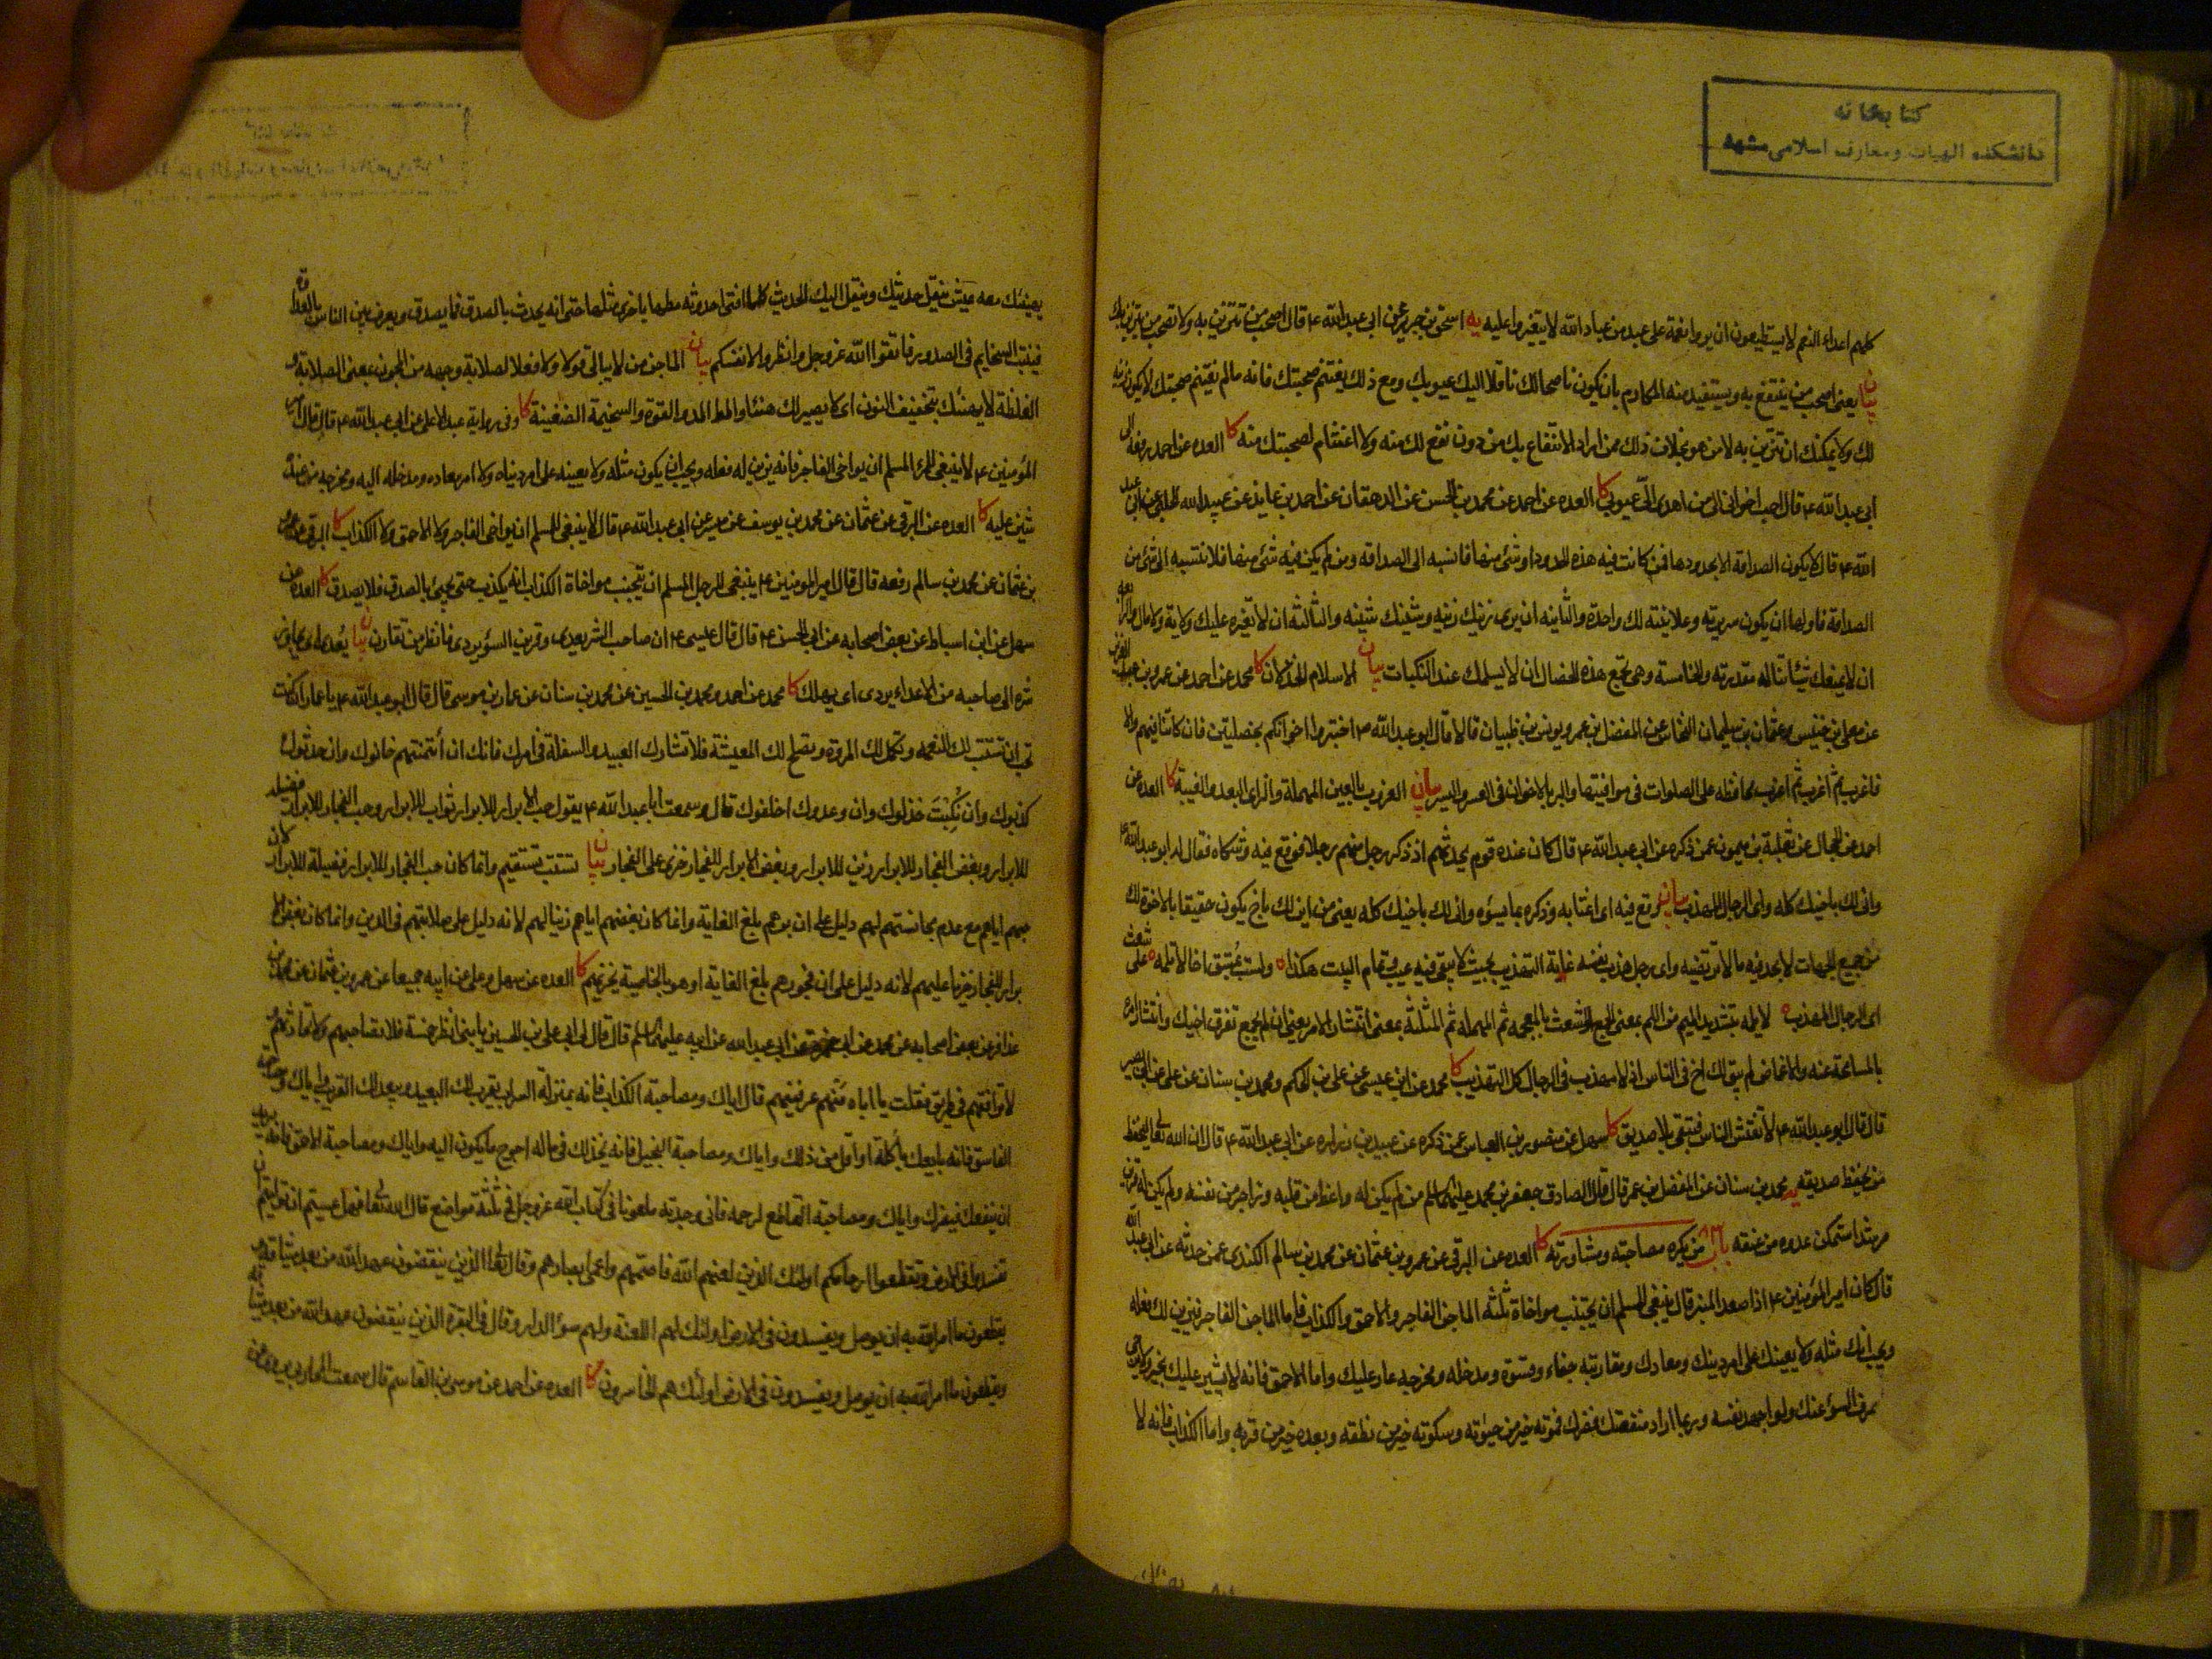 كتابخانه
دانشكده الهيات و معارف اسلامى مشهد
كلهم اعداء النعم لا يستطيعون ان يروا نعمة على عبد من عباد الله لا يتغيروا عليه يه اسحق بن جرير عن ابى عبد الله ع قال اصحب من تتزين به ولا تصحب من يتزين بك
بيان يعنى اصحب من ينتفع به ويستفيد منه المكارم بان يكون ناصحا لك ناقلا اليك عيوبك ومع ذلك يغتنم صحبتك فانه مالم يغتنم صحبتك لا يكون زينة
لك ولا يمكنك ان تتزين به لا من هو بخلاف ذلك ممن اراد الانتفاع بك من دون نفع لك منه ولا اغتنام لصحبتك منه كا العدة عن احمد رفعه الى
ابى عبد الله ع قال احب اخوانى الى من اهدى الىّ عيوبى كا العدة عن احمد عن محمد بن الحسن عن الدهقان عن احمد بن عايذ عن عبيد الله الحلبى عن ابى عبد
الله ع قال لا يكون الصداقة الا بحدودها فمن كانت فيه هذه الحدود او شئ منها فانسبه الى الصداقة ومن لم يكن فيه شئ منها فلا تنسبه الى شئ من
الصداقة فاولها ان يكون سريرته وعلانيته لك واحدة والثانية ان يرى زينك زينه وشينك شينه والثالثة ان لا تغيره عليك ولاية ولا مال والرابعة
ان لا يمنعك شيئا تناله مقدرته والخامسة وهى تجمع هذه الخصال ان لا يسلمك عند النكبات بيان الاسلام الخذلان كا محمد عن احمد عن عمر بن عبد العزيز
عن معلى بن خنيس وعثمان بن سليمان النخاس عن المفضل بن عمر ويونس بن ظبيان قالا قال ابو عبد الله ع اختبروا اخوانكم بخصلتين فان كانتا فيهم والا
فاعزب ثم اعزب ثم اعزب محافظة على الصلوات فى مواقيتها والبر بالاخوان فى العسر واليسر بيان العزوب بالعين المهملة والزاى البعد والغيبة كا العدة عن
احمد عن الحجال عن ثعلبة بن ميمون عمن ذكره عن ابى عبد الله ع قال كان عنده قوم يحدثهم اذ ذكر رجل منهم رجلا فوقع فيه وشكاه فقال له ابو عبد الله ع
وانى لك باخيك كله واى الرجال المهذب بيان وقع فيه اى اغتابه وذكره بما يسؤه وانى لك باخيك كله يعنى من اين لك باخ يكون حقيقا بالاخوة لك
من جميع الجهات لا تجد فيه ما لا ترتضيه واى رجل هذب نفسه غاية التهذيب بحيث لا يبقى فيه عيب وتمام البيت هكذا ولست بمستبق اخا لا تلمه على شعث
اى الرجال المهذب لا تلمه بتشديد الميم من اللم بمعنى الجمع والشعث بالمعجمة ثم المهملة ثم المثلثة بمعنى انتشار الامر يعنى ان لم تجمع تفرق اخيك وانتشار امره
بالمسامحة عنه والاغماض لم يبق لك اخ فى الناس اذ لا مهذب فى الرجال كل التهذيب كا محمد عن ابن عيسى عن على بن الحكم ومحمد بن سنان عن على عن ابى بصير
قال قال ابو عبد الله ع لا تفتش الناس فتبقى بلا صديق كا سهل عن منصور بن العباس عمن ذكره عن عبيد بن زراره عن ابى عبد الله ع قال ان الله تعالى ليحفظ
من يحفظ صديقه يه محمد بن سنان عن المفضل بن عمر قال قال الصادق جعفر بن محمد عليهما السلام من لم يكن له واعظ من قلبه وزاجر من نفسه ولم يكن له قرين
مرشد استمكن عدوه من عنقه باب من يكره مصاحبته ومشاورته كا العدة عن البرقى عن عمرو بن عثمان عن محمد بن سالم الكندى عمن حدثه عن ابى عبد الله
قال كان امير المؤمنين ع اذا صعد المنبر قال ينبغى للمسلم ان يجتنب مواخاة ثلثة الماجن الفاجر والاحمق والكذاب فاما الماجن الفاجر فيزين لك فعله
ويحب انك مثله ولا يعينك على امر دينك ومعادك ومقارنته جفاء وقسوة ومدخله ومخرجه عار عليك واما الاحمق فانه لا يشير عليك بخير ولا يرجى
لصرف السؤ عنك ولو اجهد نفسه وربما اراد منفعتك فضرك فموته خير من حيوته وسكوته خير من نطقه وبعده خير من قربه واما الكذاب فانه لا
يهنئك معه عيش ينقل حديثك وينقل اليك الحديث كلما افنى احدوثة مطها باخرى مثلها حتى انه يحدث بالصدق فما يصدق ويعرف بين الناس بالعداوة
فينبت السخايم فى الصدور فاتقوا الله عز وجل وانظروا لانفسكم بيان الماجن من لا يبالى قولا ولا فعلا لصلابة وجهه من المجون بمعنى الصلابة و
الغلظة لا يهنئك بتخفيف النون اى لا يصير لك هنيئا والمط المد والقوة والسخيمة الضغينة كا وفى رواية عبد الاعلى عن ابى عبد الله ع قال قال امير
المؤمنين ع لا ينبغى للمرء المسلم ان يواخى الفاجر فانه يزين له فعله ويحب ان يكون مثله ولا يعينه على امر دنياه ولا امر معاده ومدخله اليه ومخرجه من عنده
شين عليه كا العدة عن البرقى عن عثمان عن محمد بن يوسف عن ميسر عن ابى عبد الله ع قال لا ينبغى للمسلم ان يواخى الفاجر ولا الاحمق ولا الكذاب كا البرقى عن عمرو
بن عثمان عن محمد بن سالم رفعه قال قال امير المومنين ع ينبغى للرجل المسلم ان يتجنب مواخاة الكذاب انه يكذب حتى يجئ بالصدق فلا يصدق كا العدة عن
سهل عن ابن اسباط عن بعض اصحابه عن ابى الحسن ع قال قال عيسى ع ان صاحب الشر يعدى وقرين السؤ يردى فانظر من تقارن بيان يعدى اى يجاوز
شره الى صاحبه من الاعداء يردى اى يهلك كا محمد عن احمد ومحمد بن الحسين عن محمد بن سنان عن عمار بن موسى قال قال ابو عبد الله ع يا عمار ان كنت
تحب ان تستتب لك النعمه وتكمل لك المروة وتصلح لك المعيشة فلا تشارك العبيد والسفلة فى امرك فانك ان ائتمنتهم خانوك وان حدثوك
كذبوك وان نكبت خذلوك وان وعدوك اخلفوك قال وسمعت ابا عبد الله ع يقول حب الابرار للابرار ثواب للابرار وحب الفجار للابرار فضيلة
للابرار وبغض الفجار للابرار زين للابرار وبغض الابرار للفجار خزى على الفجار بيان تستتب تستقيم وانما كان حب الفجار للابرار فضيلة للابرار لان
حبهم اياهم مع عدم مجانستهم لهم دليل على ان برهم بلغ الغاية وانما كان بغضهم اياهم زينا لهم لانه دليل على صلابتهم فى الدين وانما كان بغض الا
برار للفجار خزيا عليهم لانه دليل على ان فجورهم بلغ الغاية او هو بالخاصية يخزيهم كا العدة عن سهل وعلى عن ابيه جميعا عن عمرو بن عثمان عن محمد بن
عذافر عن بعض اصحابه عن محمد عن ابى حمزة عن ابى عبد الله عن ابيه عليهما السلم قال قال لى ابى على بن الحسين يا بنى انظر خمسة فلا تصاحبهم ولا تحادثهم و
لا ترافقهم فى طريق فقلت يا اباه من هم عرفنيهم قال اياك ومصاحبة الكذاب فانه بمنزلة السراب يقرب لك البعيد ويبعد لك القريب واياك ومصاحبة
الفاسق فانه بايعك باكلة او اقل من ذلك واياك ومصاحبة البخيل فانه يخذلك فى ماله احوج ما يكون اليه واياك ومصاحبة الاحمق فانه يريد
ان ينفعك فيضرك واياك ومصاحبة القاطع لرحمه فانى وجدته ملعونا فى كتاب الله عز وجل فى ثلثة مواضع قال الله تعالى فهل عسيتم ان توليتم ان
تفسدوا فى الارض وتقطعوا ارحامكم اولئك الذين لعنهم الله فاصمهم واعمى ابصارهم وقال تعالى الذين ينقضون عهد الله من بعد ميثاقه و
يقطعون ما امر الله به ان يوصل ويفسدون فى الارض اولئك لهم اللعنة ولهم سوء الدار وقال فى البقرة الذين ينقضون عهد الله من بعد ميثاقه
ويقطعون ما امر الله به ان يوصل ويفسدون فى الارض اولئك هم الخاسرون كا العدة عن احمد عن موسى بن القاسم قال سمعت المحاربى يروى عن